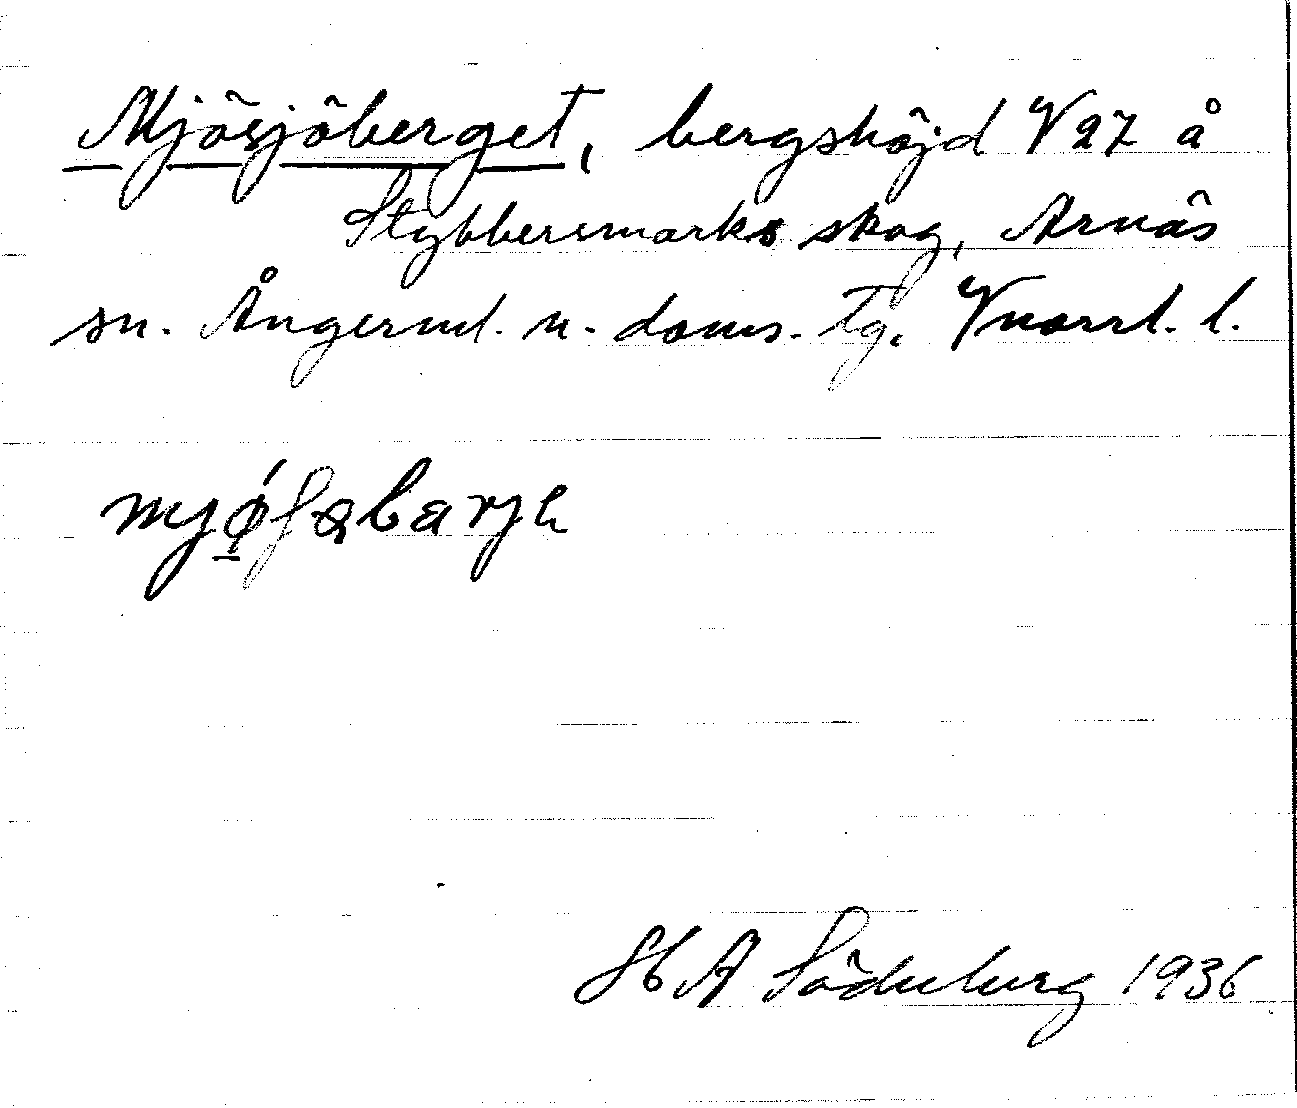 Mjösjöberget, bergshöjd V27 å
Stybbersmarks skog, Arnäs
sn. Ångerml. n. doms. tg. Vnorrl. l.
H A Söderberg 1936